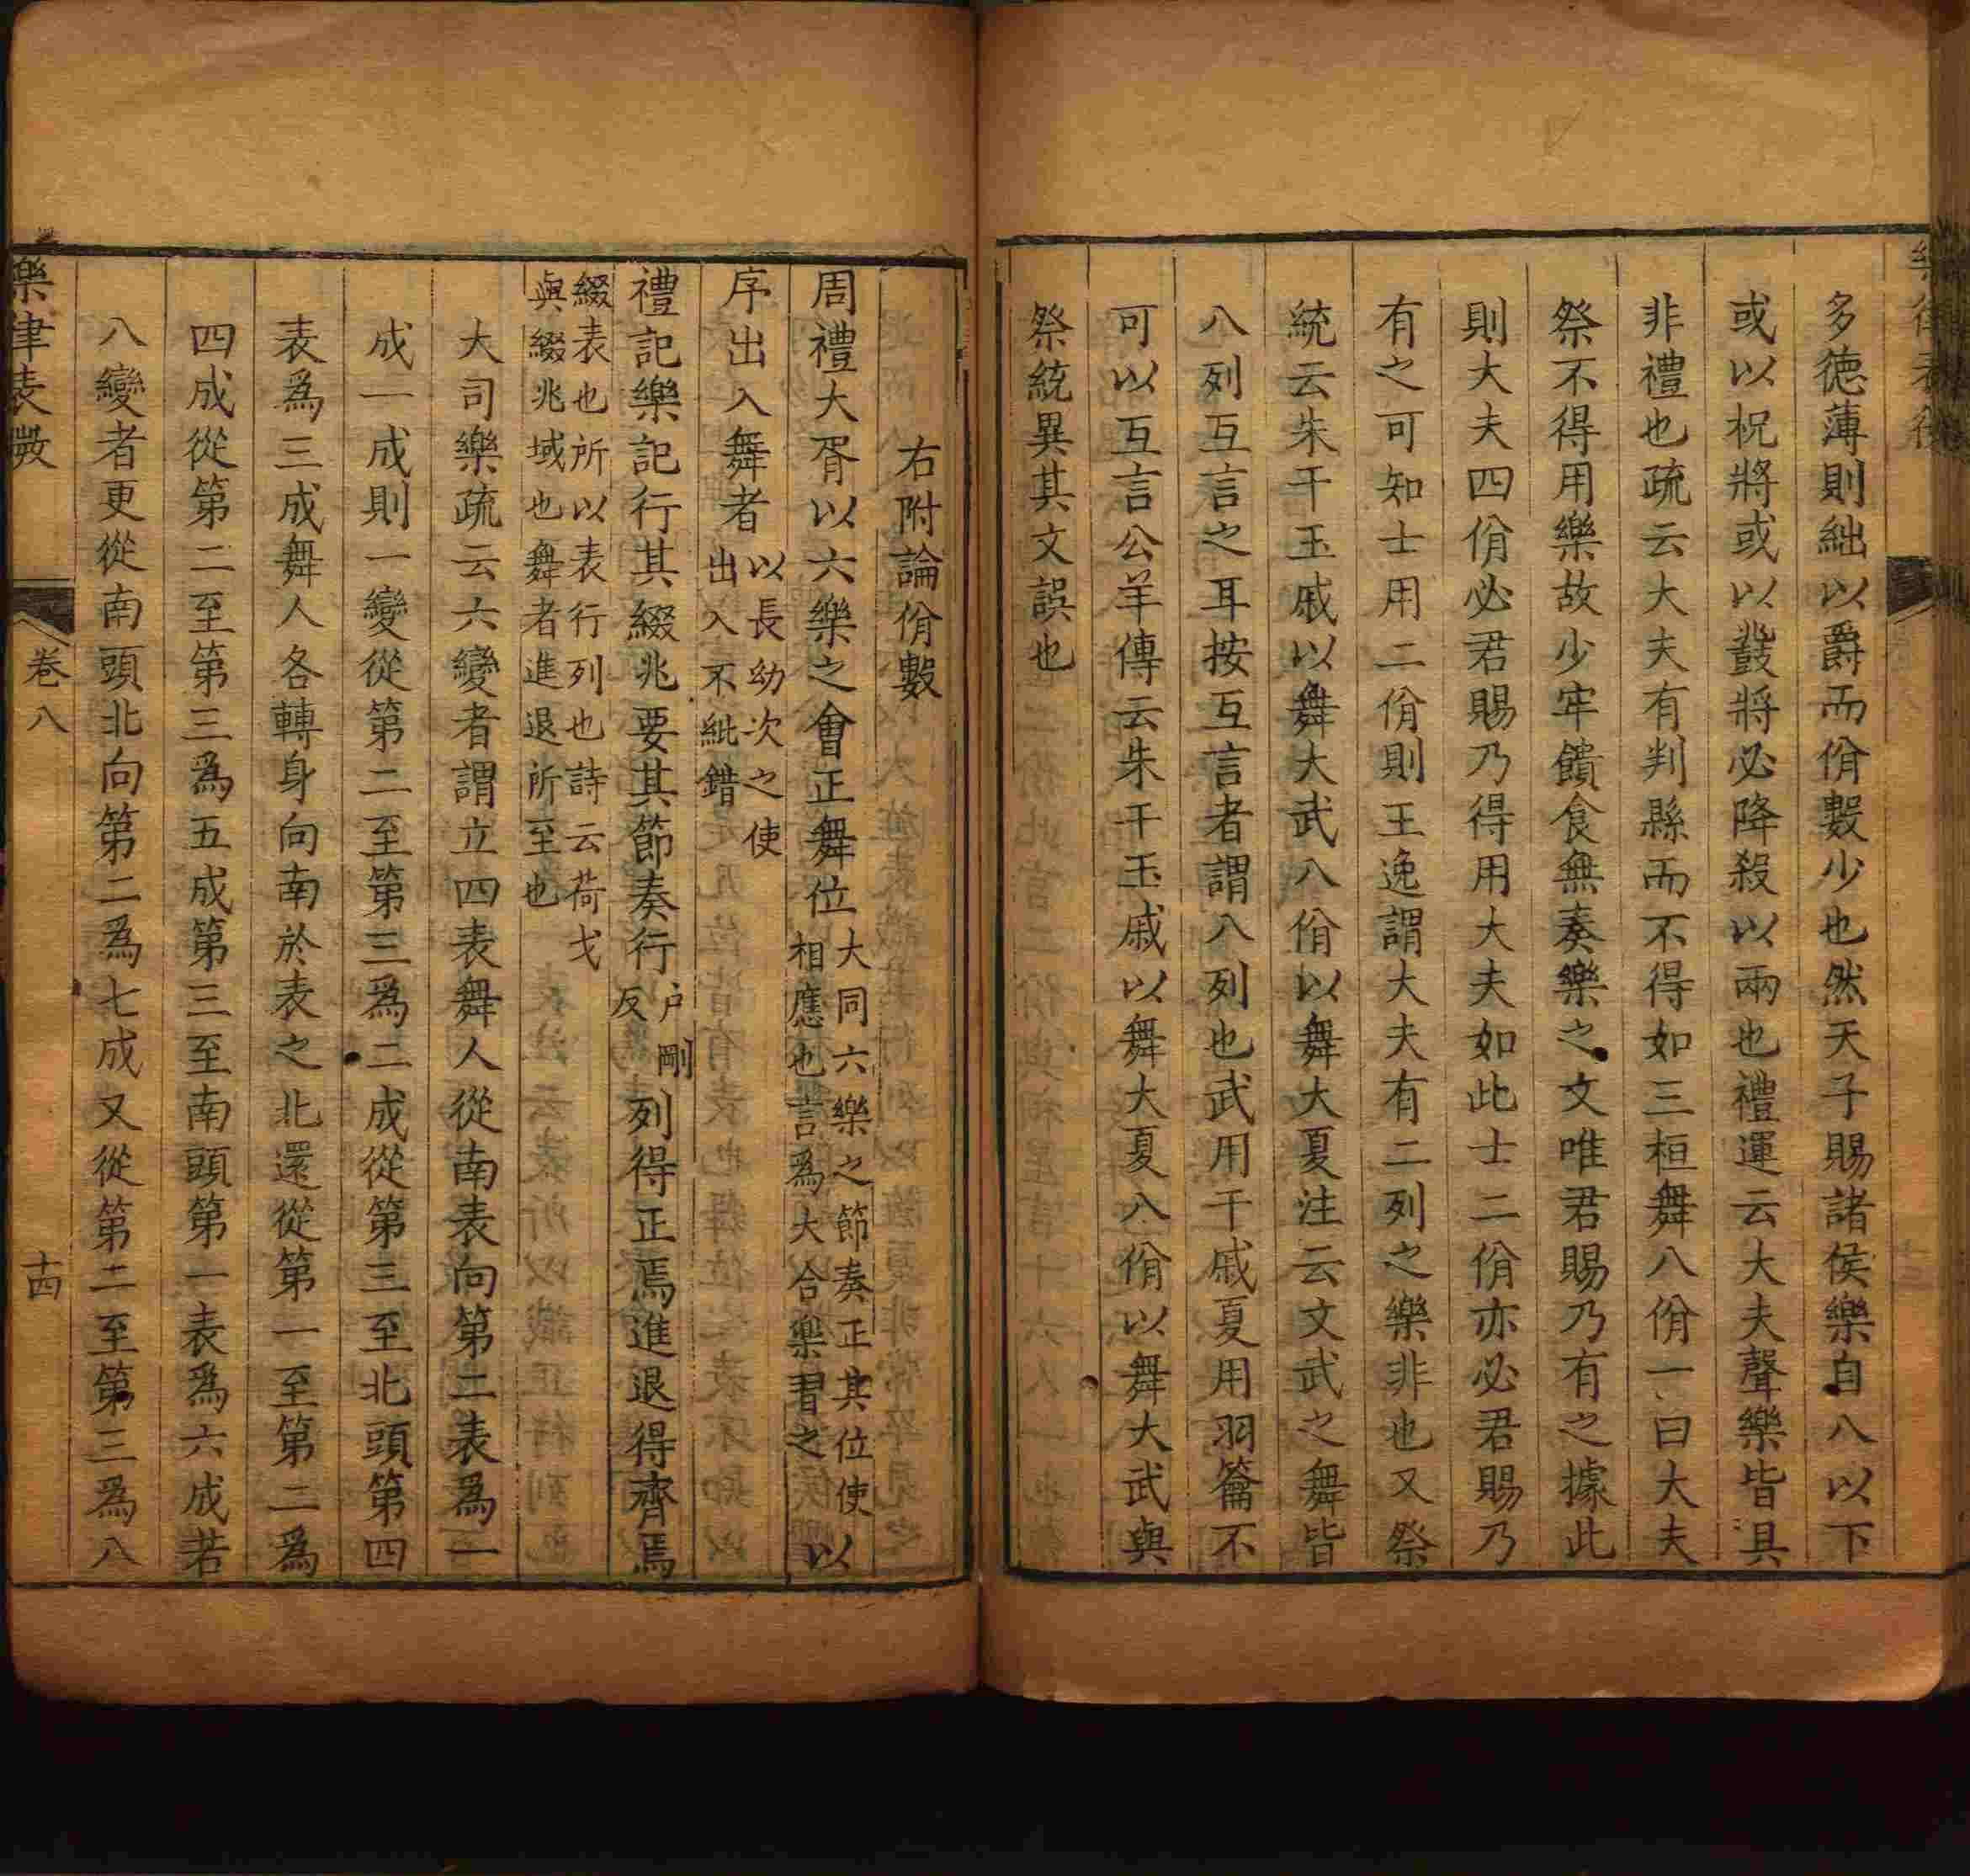 多德薄則絀以爵而佾數少也然天子賜諸侯樂自八以下
或以柷將或以鼗將必降殺以兩也禮運云大夫聲樂皆具
非禮也疏云大夫有判縣而不得如三桓舞八佾一曰大夫
祭不得用樂故少牢饋食無奏樂之文唯君賜乃有之據此
則大夫四佾必君賜乃得用大夫如此士二佾亦必君賜乃
有之可知士用二佾則王逸謂大夫有二列之樂非也又祭
統云朱干玉戚以舞大武八佾以舞大夏注云文武之舞皆
八列互言之耳按互言者謂八列也武用干戚夏用羽籥不
可以互言公羊傳云朱干玉戚以舞大夏八佾以舞大武與
祭統異其文誤也
右附論佾數
周禮大胥以六樂之會正舞位大同六樂之節奏正其位使相應也言為大合樂習之以
序出入舞者以長幼次之使出入不紕錯
禮記樂記行其綴兆要其節奏行戶剛反列得正焉進退得齊焉
綴表也所以表行列也詩云荷戈
與綴兆域也舞者進退所至也
大司樂疏云六變者謂立四表舞人從南表向第二表為一
成一成則一變從第二至第三為二成從第三至北頭第四
表為三成舞人各轉身向南於表之北還從第一至第二為
四成從第二至第三為五成第三至南頭第一表為六成若
八變者更從南頭北向第二為七成又從第二至第三為八
樂律表微
卷八
十四